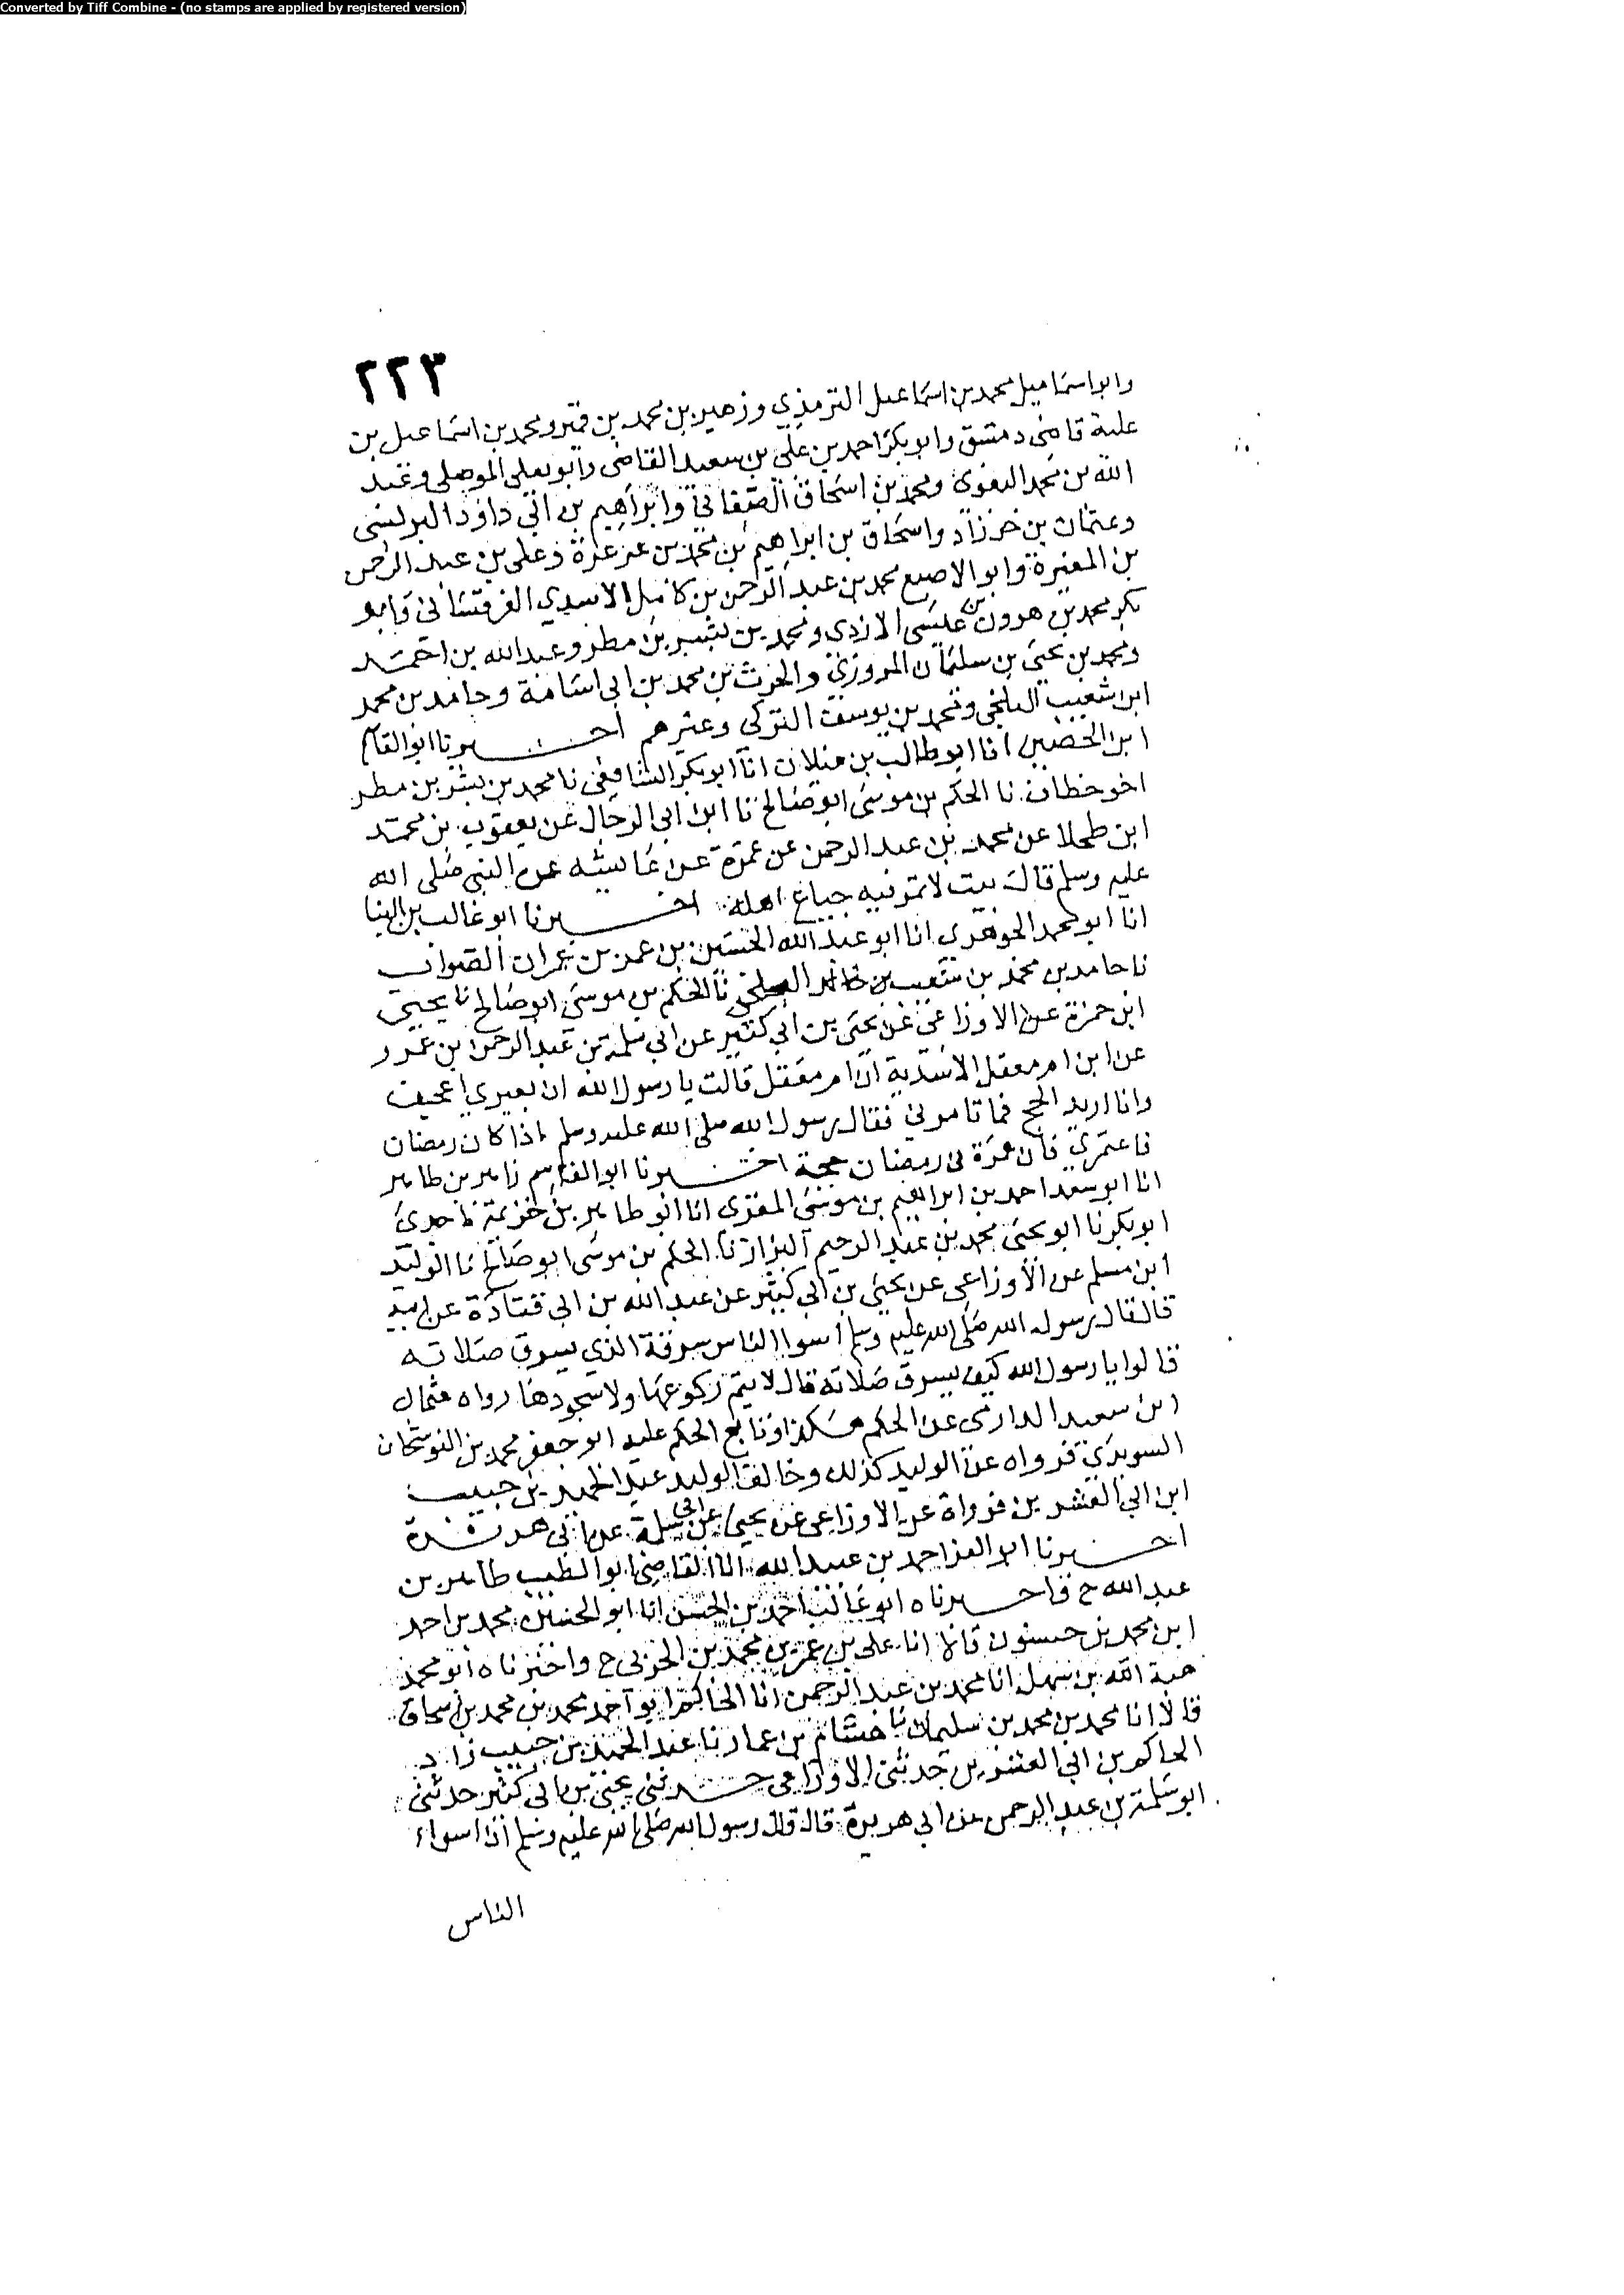 Converted by Tiff Combine - (no stamps are applied by registered version)
٢٢٣
وابو اسماعيل محمد بن اسماعيل الترمذي وزهير بن محمد بن قمير ومحمد بن اسماعيل بن
علية قاضى دمشق وابو بكر احمد بن علي بن سعيد القاضى وابو يعلى الموصلى وعبد
الله بن محمد البغوى ومحمد بن اسحاق الصغانى وابراهيم بن ابي داود البرلسى
وعثمان بن خرزاد واسحاق بن ابراهيم بن محمد بن عرعرة وعلى بن عبد الرحمن
بن المغيرة وابو الاصبع محمد بن عبد الرحمن بن كامل الاسدي القرقسانى وابو
بكر محمد بن هرون بن عيسى الازدى ومحمد بن بشر بن مطر وعبد الله بن احمد
ومحمد بن يحيى بن سليمان المروزي والحرث بن محمد بن ابى اسامة وحامد بن محمد
ابن شعيب البلخى ومحمد بن يوسف التركى وغيرهم اخبرنا ابو القاسم
ابن الحصين انا ابو طالب بن غيلان انا ابو بكر الشافعى نا محمد بن بشر بن مطر
اخو خطاف نا الحكم بن موسى ابو صالح نا ابن ابى الرجال عن يعقوب بن محمد
ابن طحلا عن محمد بن عبد الرحمن عن عمرة عن عائشه عن النبي صلى الله
عليه وسلم قال بيت لا تمر فيه جياع اهله اخبرنا ابو غالب بن البنا
انا ابو محمد الجوهرى انا ابو عبد الله الحسين بن عمر بن عمران الضراب
نا حامد بن محمد بن شعيب البلخي نا الحكم بن موسى ابو صالح نا يحيى
ابن حمزة عن الاوزاعى عن يحيى بن ابي كثير عن ابى سلمة بن عبد الرحمن بن
عن ابن ام معقل الاسدية ان ام معقل قالت يا رسول الله ان بعيري اعجف
وانا اريد الحج فما تامرني فقال رسول الله صلى الله عليه وسلم اذا كان رمضان
فاعتمري فان عمرة فى رمضان حجة اخبرنا ابو القاسم زاهر بن طاهر
انا ابو سعد احمد بن ابراهيم بن موسى المقرى انا ابو طاهر بن خزيمة نا جدي
ابو بكر نا ابو يحيى محمد بن عبد الرحيم البزاز نا الحكم بن موسى ابو صالح نا الوليد
ابن مسلم عن الأوزاعى عن يحيى بن ابي كثير عن عبد الله بن ابى قتادة عن ابيه
قال قال رسول الله صلى الله عليه وسلم أسوا الناس سرقة الذي يسرق صلاته
قالوا يا رسول الله كيف يسرق صلاته قال لا يتم ركوعها ولا سجودها رواه عثمان
ابن سعيد الدارمى عن الحكم هكذا وتابع الحكم عليه ابو جعفر محمد بن النوشجان
السويدي فرواه عن الوليد كذلك وخالف الوليد عبد الحميد بن حبيب
ابن ابي العشرين فرواه عن الاوزاعى عن يحيى عن ابي سلمة عن ابى هريرة
اخبرنا ابو العز احمد بن عبيد الله انا القاضى ابو الطيب طاهر بن
عبد الله ح واخبرناه ابو غالب احمد بن الحسن انا ابو الحسين محمد بن احمد
ابن محمد بن حسنون قالا انا على بن عمر بن محمد بن الحربى ح واخبرناه ابو محمد
هبة الله بن سهل انا محمد بن عبد الرحمن انا الحاكم ابو احمد محمد بن محمد بن اسحاق
قالا انا محمد بن محمد بن سليمان نا هشام بن عمار نا عبد الحميد بن حبيب زاد
الحاكم بن ابي العشرين حدثنى الاوزاعى حدثنى يحيى بن ابى كثير حدثنى
ابو سلمة بن عبد الرحمن عن ابي هريرة قال قال رسول الله صلى الله عليه وسلم ان اسواء
الناس